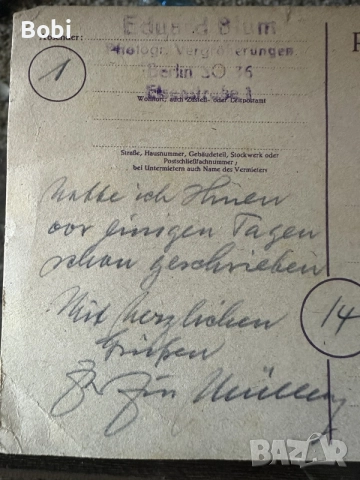 Bobi
Absender:
Eduard Blum
Photogr. Vergrößerungen
Berlin SO 36
Wohnort, auch Zustell- oder Leitpostamt
Straße, Hausnummer, Gebäudeteil, Stockwerk oder
Postschließfachnummer;
bei Untermietern auch Name des Vermieters
1
hatte ich Ihnen
vor einigen Tagen
schon geschrieben
Mit herzlichen
Grüßen
Müller
14
BAZAR